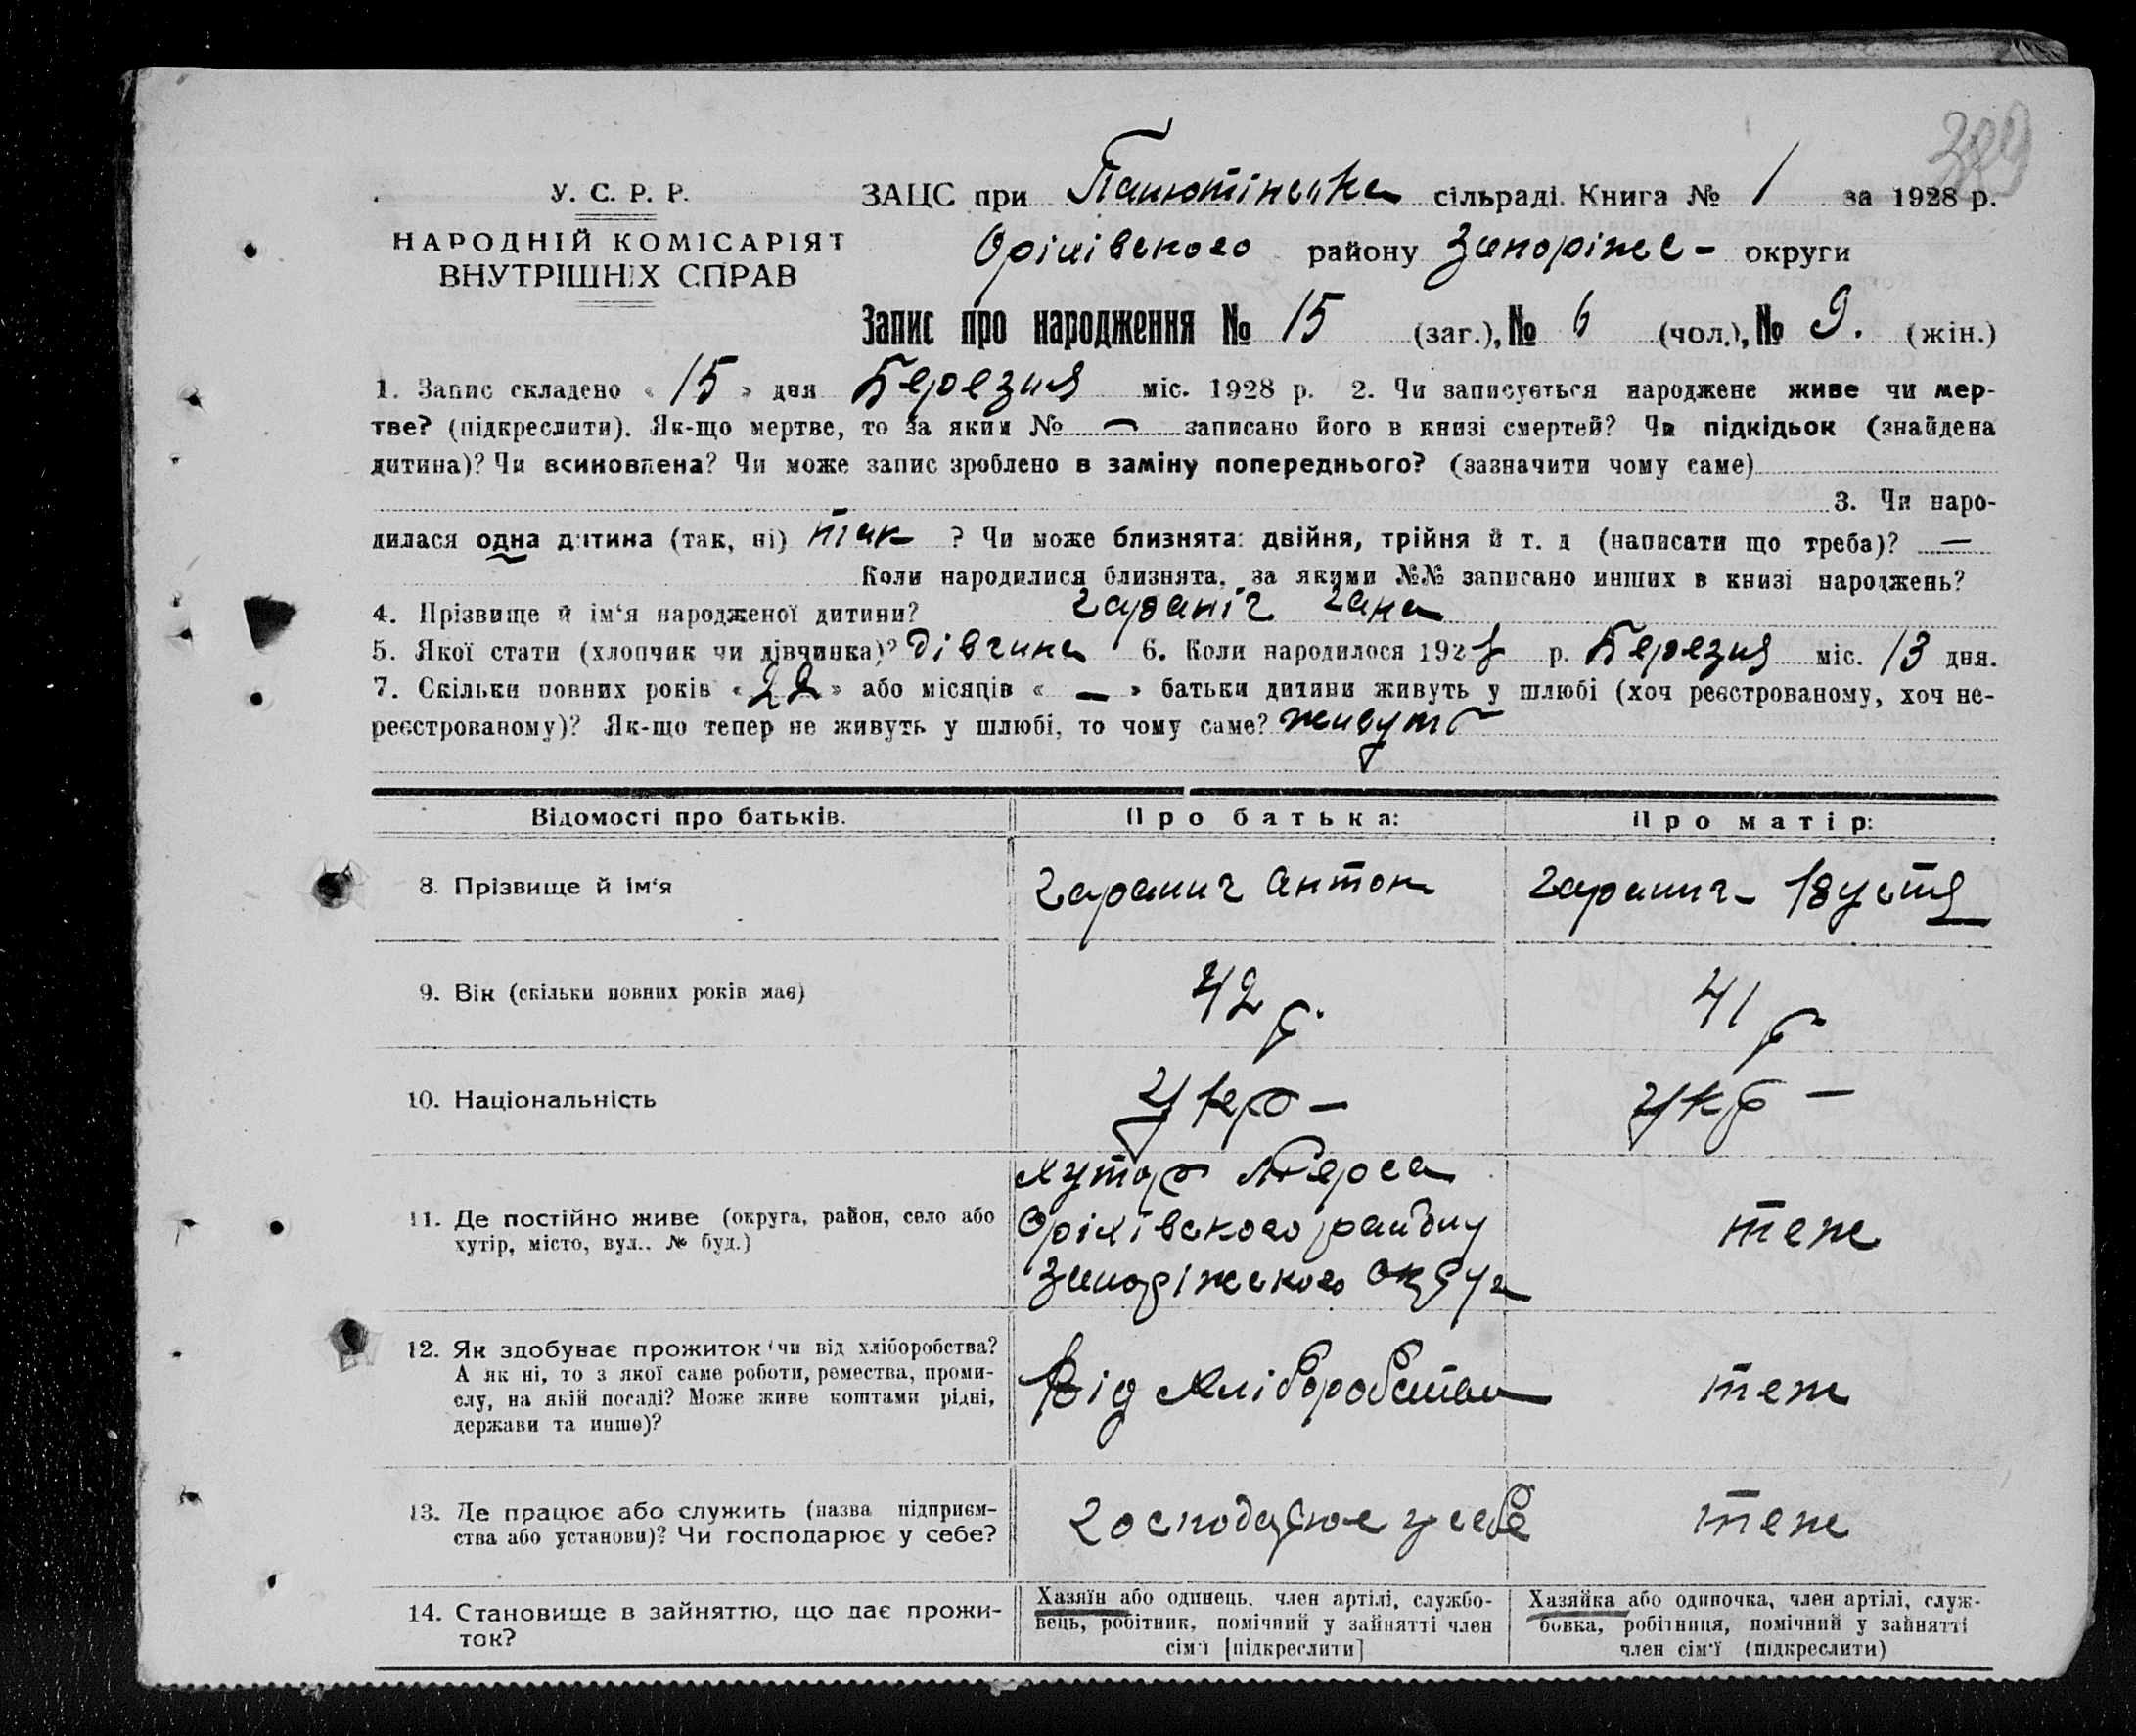 389
У. С. Р. Р.
НАРОДНІЙ КОМІСАРІЯТ
ВНУТРІШНІХ СПРАВ
ЗАЦС при Панютінська сільраді. Книга № 1 за 1928 р.
Оріхівського району Запоріже- округи
Запис про народження № 15 (заг.), № 6 (чол.), № 9. (жін.)
1. Запис складено « 15 » дня Березня міс. 1928 р. 2. Чи записується народжене живе чи мер-
тве? (підкреслити). Як-що мертве, то за яким № — записано його в книзі смертей? Чи підкідьок (знайдена
дитина)? Чи всиновлена? Чи може запис зроблено в заміну попереднього? (зазначити чому саме)
3. Чи наро-
дилася одна дитина (так, ні) так ? Чи може близнята: двійня, трійня й т. д (написати що треба)? —
Коли народилися близнята, за якими №№ записано инших в книзі народжень?
4. Прізвище й ім‘я народженої дитини? Гараніч Гана
5. Якої стати (хлопчик чи дівчинка)? Дівчина 6. Коли народилося 1928 р. Березня міс. 13 дня.
7. Скільки повних років « 22 » або місяців « — » батьки дитини живуть у шлюбі (хоч реєстрованому, хоч не-
реєстрованому)? Як-що тепер не живуть у шлюбі, то чому саме? живуть
Відомості про батьків.
Про батька:
Про матір:
8. Прізвище й ім‘я
Гаранич Антон
Гаранич-
9. Вік (скільки повних років має)
42 р.
41 р
10. Національність
Укр —
Укр —
11. Де постійно живе (округа, район, село або
хутір, місто, вул.. № буд.)
Хутор
Оріхівского району
Запоріжского округа
теж
12. Як здобуває прожиток чи від хліборобства?
А як ні, то з якої саме роботи, ремества, проми-
слу, на якій посаді? Може живе коштами рідні,
держави та инше)?
Від хліборобства
теж
13. Де працює або служить (назва підприєм-
ства або установи)? Чи господарює у себе?
Господарює у себе
теж
14. Становище в зайняттю, що дає прожи-
ток?
Хазяїн або одинець. член артілі, службо-
вець, робітник, помічний у зайнятті член
сім‘ї [підкреслити]
Хазяйка або одиночка, член артілі, служ-
бовка, робітниця, помічний у зайнятті
член сім‘ї (підкреслити)